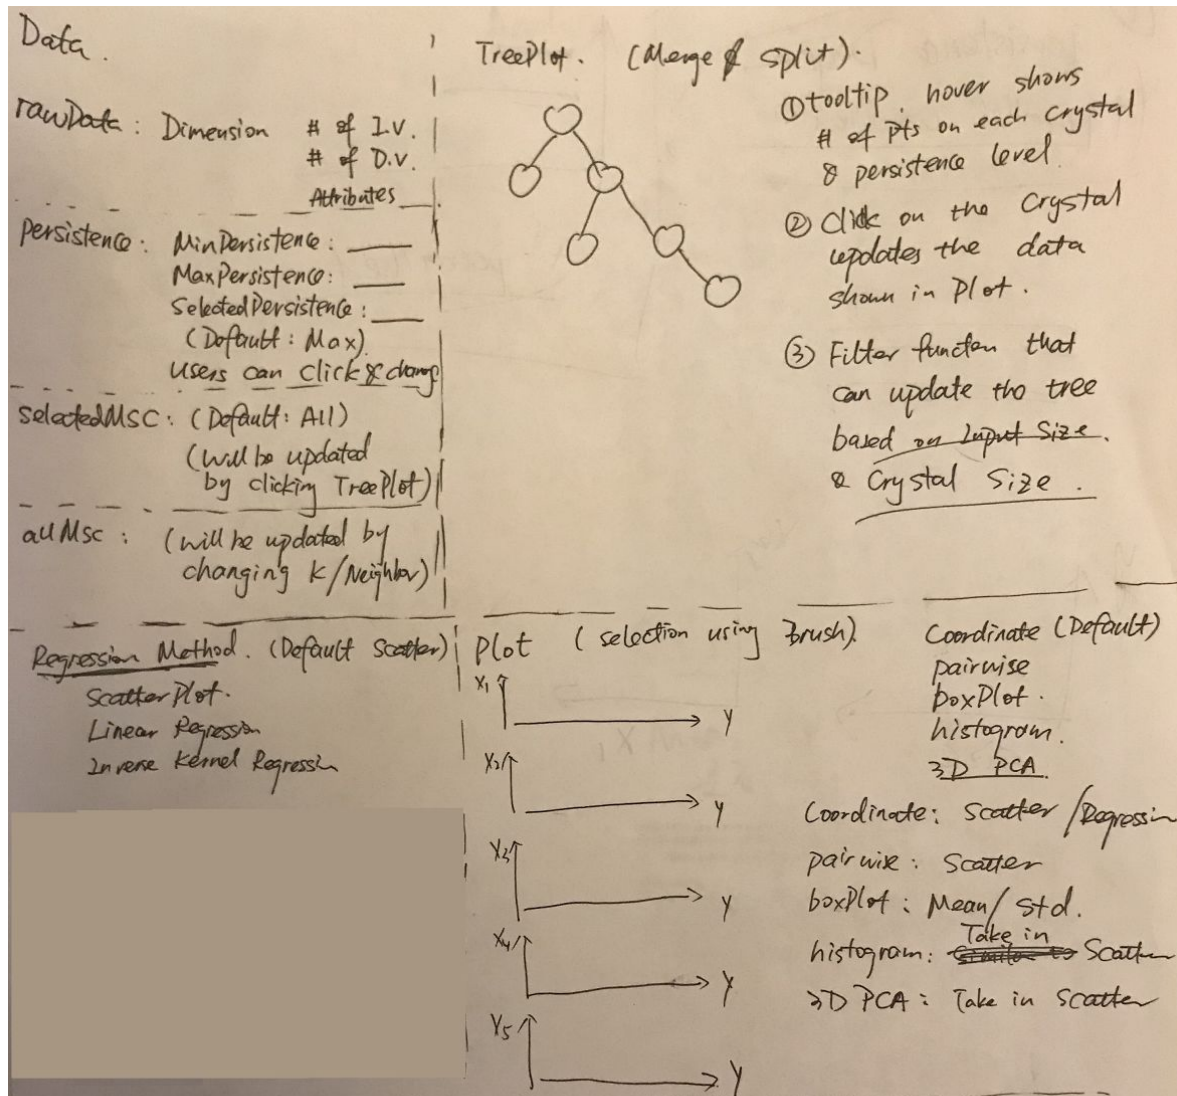 Data.
rawData: Dimension # of I.V.
# of D.V.
Attributes
Persistence: MinPersistence:
MaxPersistence:
SelectedPersistence:
(Default: Max)
users can click & change
selectedMSC: (Default: All)
(will be updated
by clicking TreePlot)
allMsc: (will be updated by
changing k/Neighbor)
Regression Method. (Default Scatter)
ScatterPlot.
Linear Regression
Inverse Kernel Regression
TreePlot. (Merge & split).
① tooltip, hover shows
# of Pts on each Crystal
& persistence level
② Click on the Crystal
updates the data
shown in Plot.
③ Filter functon that
can update the tree
based on Input Size.
& Crystal Size.
Plot (selection using Brush).
X1 Y
X2 Y
X3 Y
X4 Y
X5 Y
Coordinate (Default)
pairwise
boxPlot.
histogram.
3D PCA.
Coordinate: Scatter/Regression
pairwise: Scatter
boxPlot: Mean/Std.
histogram: Take in Scatter
3D PCA: Take in Scatter